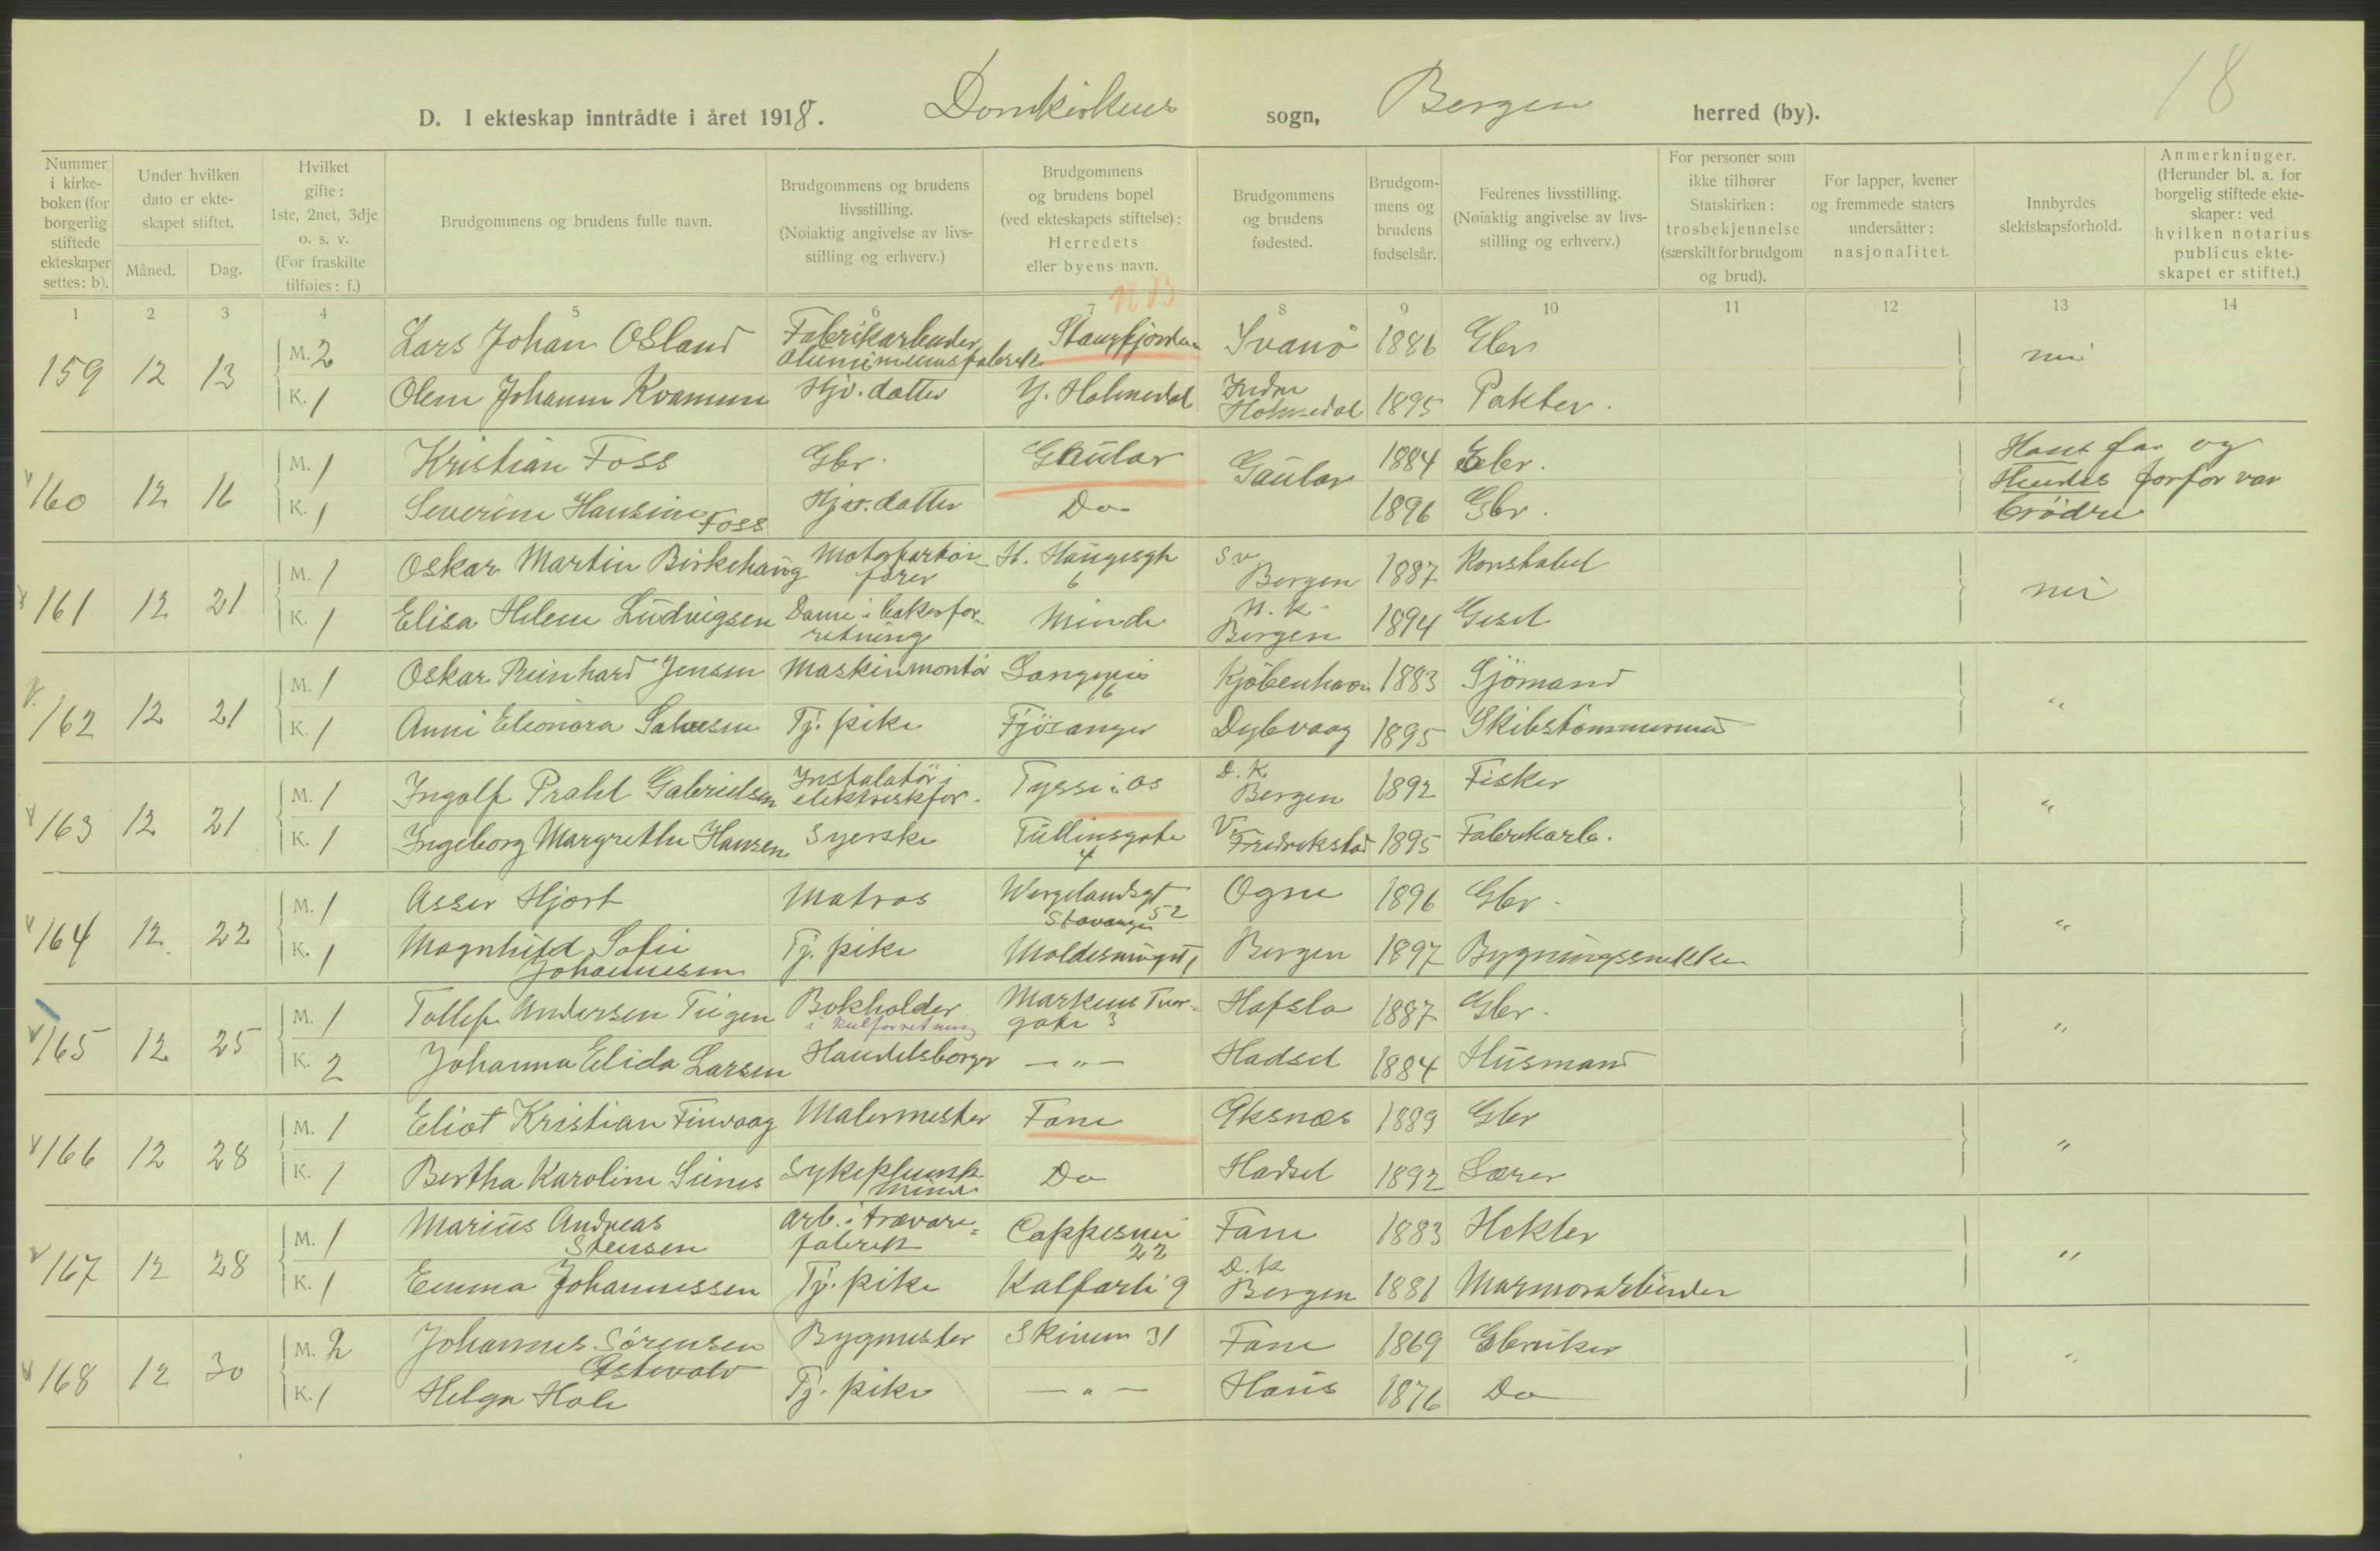 18
D. I ekteskap inntrådte i året 1918. Domkirkens sogn, Bergen herred (by).
Nummer i kirkeboken (for borgerlig stiftede ekteskaper settes: b).
Under hvilken dato er ekteskapet stiftet.
Måned. Dag.
Hvilket gifte: 1ste, 2net, 3dje o. s. v. (For fraskilte tilføies: f.)
Brudgommens og brudens fulle navn.
Brudgommens og brudens livsstilling. (Nøiaktig angivelse av livsstilling og erhverv.)
Brudgommens og brudens bopel (ved ekteskapets stiftelse): Herredets eller byens navn.
Brudgommens og brudens fødested.
Brudgommens og brudens fødselsår.
Fedrenes livsstilling. (Nøiaktig angivelse av livsstilling og erhverv.)
For personer som ikke tilhører Statskirken: trosbekjennelse (særskilt for brudgom og brud).
For lapper, kvener og fremmede staters undersåtter: nasjonalitet.
Innbyrdes slektskapsforhold.
Anmerkninger. (Herunder bl. a. for borgelig stiftede ekteskaper: ved hvilken notarius publicus ekteskapet er stiftet.)
1 2 3 4 5 6 7 8 9 10 11 12 13 14
NB
159 12 13 M. 2 Lars Johan Osland Fabrikarbeider aluminiumsfabrik Stangfjorden Svanö 1886 Gbr. nei
K. 1 Olene Johanne Kvamme Hjv. datter Y. Holmedal Indre Holmedal 1895 Pakter.
160 12 16 M. 1 Kristian Foss Gbr. Gaular Gaular 1884 Gbr. Hans far og Hendes farfar var brödre
K. 1 Severine Hansine Foss Hjv. datter Do 1896 Gbr.
161 12 21 M. 1 Oskar Martin Birkehaug Motorfartöifører H. Haugesgt 6 Bergen 1887 Konstabel nei
K. 1 Elisa Helene Ludvigsen Dame i bakerforretning Minde N. K. Bergen 1894 Gesel
162 12 21 M. 1 Oskar Reinhard Jensen Maskinmontör Langevei 16 Kjöbenhavn 1883 Sjömand "
K. 1 Anni Eleonora Salvesen Tj. pike Fjösanger Dybvaag 1895 Skibstømmermand
163 12 21 M. 1 Ingolf Prahl Gabrielsen Instalatör i elektriskfor. Tysse i Os D. K Bergen 1892 Fisker "
K. 1 Ingeborg Margrethe Hansen Syerske Tullinsgate 4 V. Fredrikstad 1895 Fabrikarb.
164 12 22 M. 1 Asser Hjort Matros Wergelandsgt 52 Stavanger Ogne 1896 Gbr. "
K. 1 Magnhild Sofie Johannesen Tj. pike Bergen 1897 Bygningssnekker
165 12 25 M. 1 Tollef Andersen Teigen Bokholder i kulforretning Markens Tvergate 3 Hafslo 1887 Gbr. "
K. 2 Johanna Elida Larsen Handelsborger — " — Hadsel 1884 Husmand
166 12 28 M. 1 Eliot Kristian Finvaag Malermester Fane Öksnes 1889 Gbr "
K. 1 Bertha Karoline Sines Sykepleierske Do Hadsel 1892 Lærer
167 12 28 M. 1 Marius Andreas Stensen Arb. i trævarefabrik Cappesvei 22 Fane 1883 Hekler "
K. 1 Emma Johannessen Tj. pike Kalfarli 9 D. K Bergen 1881 Marmorarbeider
168 12 30 M. 2 Johannes Sörensen Östervold Bygmester Skiven 31 Fane 1869 Gbruker "
K. 1 Helga Hole Tj. pike — " — Haus 1876 Do